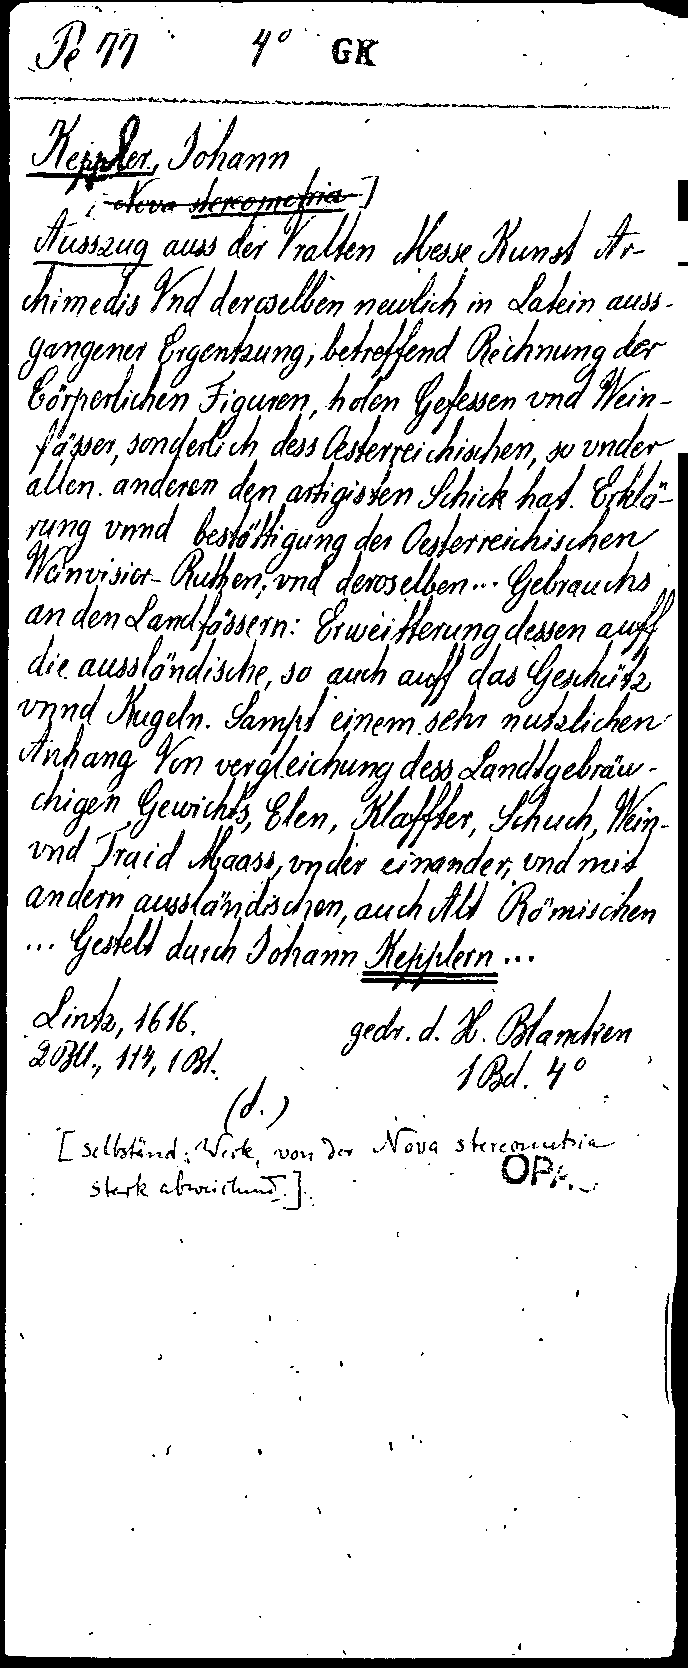 Pe 77 4° GK
Keppler, Johann
[Nova stereometria]
Ausszug auss der Vralten Messe Kunst Ar-
chimedis Vnd deroselben newlich in Latein auss-
gangener Ergentzung, betreffend Rechnung der
Cörperlichen Figuren, holen Gefessen vnd Wein-
fässer, sonderlich dess Oesterreichischen, so vnder
allen anderen den artigisten Schick hat. Erklä-
rung vnnd bestättigung der Oesterreichischen
Weinvisier-Ruthen, vnd deroselben ... Gebrauchs
an den Landfässern: Erweitterung dessen auff
die aussländische, so auch auff das Geschütz
vnnd Kugeln. Sampt einem sehr nutzlichen
Anhang Von vergleichung dess Landtgebräu-
chigen Gewichts, Elen, Klaffter, Schuch, Wein-
vnd Traid Maass, vnder einander, vnd mit
andern aussländischen, auch Alt Römischen
... Gestelt durch Johann Kepplern ...
Lintz, 1616. gedr. d. H. Blancken
2 Bll., 114, 1 Bl. 1 Bd. 4°
(d.)
[selbständ. Werk, von der Nova stereometria
stark abweichend.]